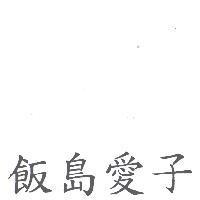 飯島愛子